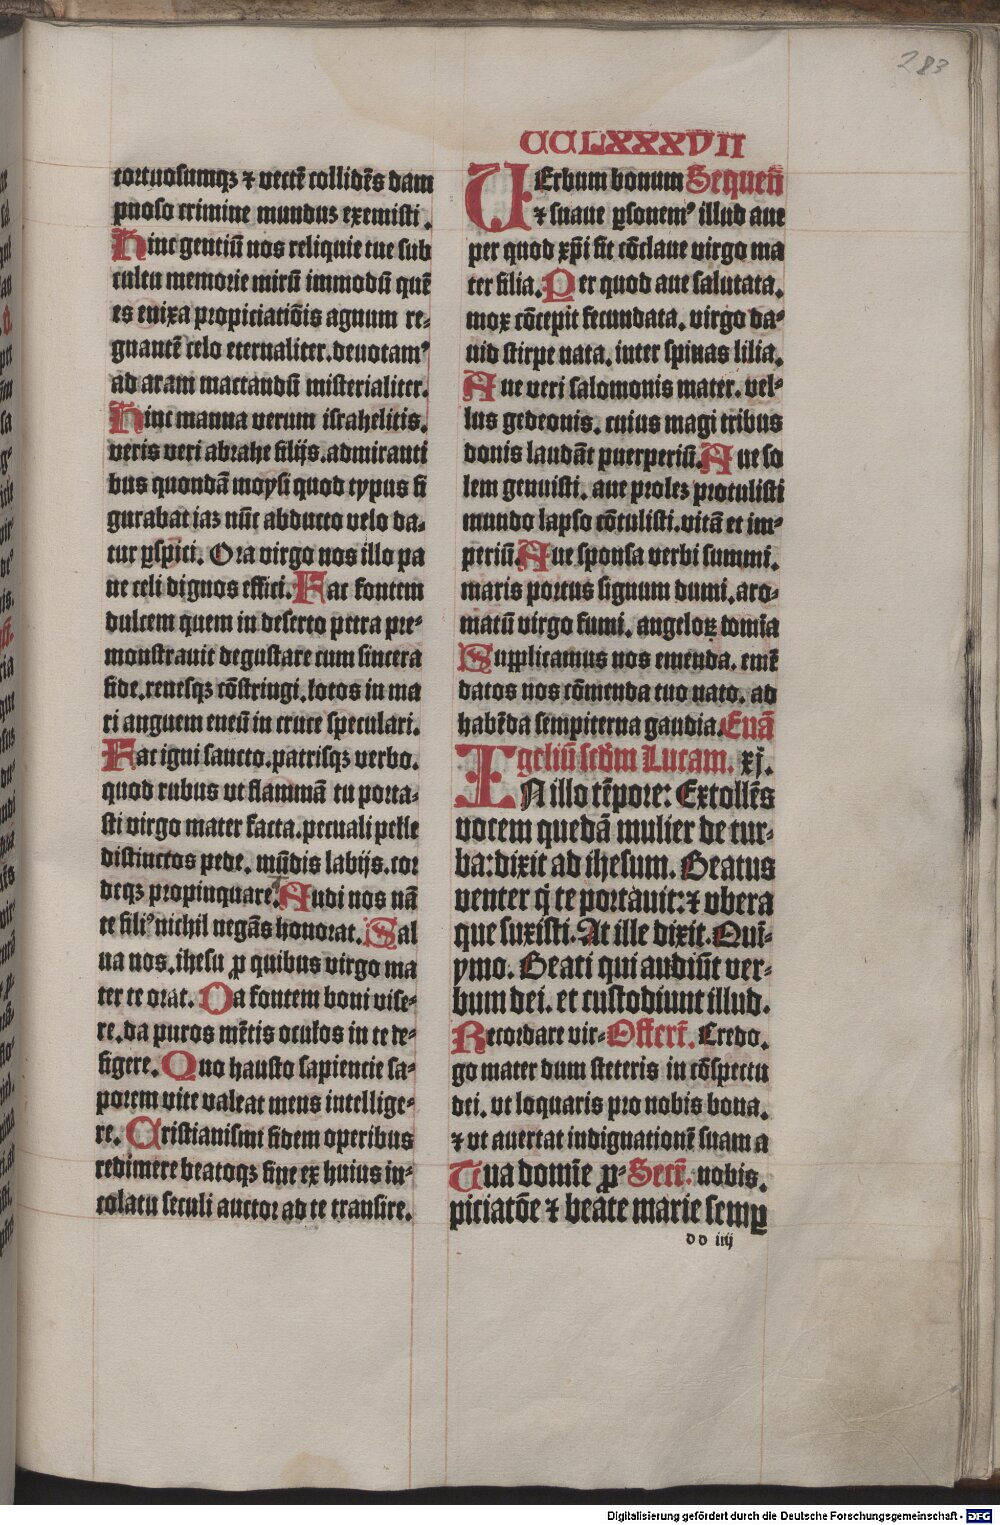 283
CCLXXXVII
tortuosumqꝫ ⁊ vectē collidēs dam
pnoso crimine mundus exemisti.
Hinc gentiū nos reliquie tue sub
cultu memorie mirū immodū quē
es enixa propiciatiōis agnum re-
gnantē celo eternaliter. deuotamꝰ
ad aram mactandū misterialiter.
Hinc manna verum israhelitis.
veris veri abrahe filijs. admiranti
bus quondā moysi quod typus fi
gurabat iaꝫ nūc abducto velo da-
tur ꝑspici. Ora virgo nos illo pa
ne celi dignos effici. Fac fontem
dulcem quem in deserto petra pre-
monstrauit degustare cum sincera
fide. renesqꝫ cōstringi. lotos in ma
ri anguem eneū in cruce speculari.
Fac igni sancto. patrisqꝫ verbo.
quod rubus vt flammā tu porta-
sti virgo mater facta. pecuali pelle
distinctos pede. mūdis labijs. cor
deqꝫ propinquare. Audi nos nā
te filiꝰ nichil negās honorat. Sal
ua nos. ihesu ꝓ quibus virgo ma
ter te orat. Da fontem boni vise-
re. da puros mētis oculos in te de-
figere. Quo hausto sapiencie sa-
porem vite valeat mens intellige-
re. Cristianismi fidem operibus
redimere beatoqꝫ fine ex huius in-
colatu seculi auctor ad te transire.
VErbum bonum Sequeñ
⁊ suaue ꝑsonemꝰ illud aue
per quod xp̄i fit cōclaue virgo ma
ter filia. Per quod aue salutata.
mox cōcepit fecundata. virgo da-
uid stirpe nata. inter spinas lilia.
Aue veri salomonis mater. vel-
lus gedeonis. cuius magi tribus
donis laudāt puerperiū. Aue so
lem genuisti. aue proleꝫ protulisti
mundo lapso cōtulisti. vitā et im-
periū. Aue sponsa verbi summi.
maris portus signum dumi. aro-
matū virgo fumi. angeloꝝ domīa
Supplicamus nos emenda. emē
datos nos cōmenda tuo nato. ad
habēda sempiterna gaudia. Euā
geliū scd̄m Lucam. xj.
IN illo tēpore: Extollēs
vocem quedā mulier de tur-
ba: dixit ad ihesum. Beatus
venter q̄ te portauit: ⁊ vbera
que suxisti. At ille dixit. Quī-
ymo. Beati qui audiūt ver-
bum dei. et custodiunt illud.
Recordare vir- Offert̄. Credo.
go mater dum steteris in cōspectu
dei. vt loquaris pro nobis bona.
⁊ vt auertat indignationē suam a
Tua domīe ꝓ- Secr̄. nobis.
piciatōe ⁊ beate marie semꝑ
dd iiij
Digitalisierung gefördert durch die Deutsche Forschungsgemeinschaft - DFG